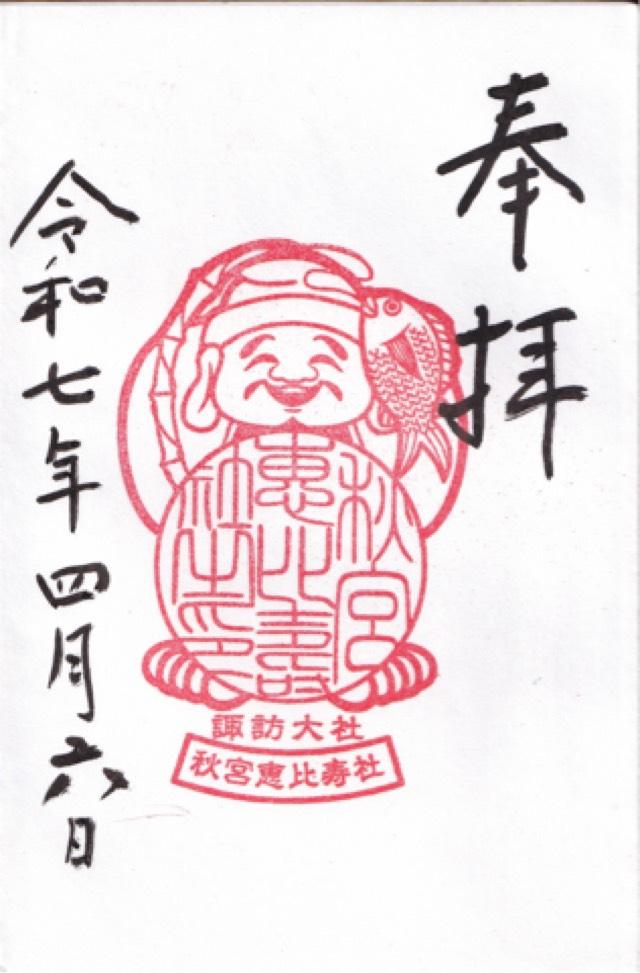 奉拝
秋宮
惠比壽
社之印
諏訪大社
秋宮恵比寿社
令和七年四月六日